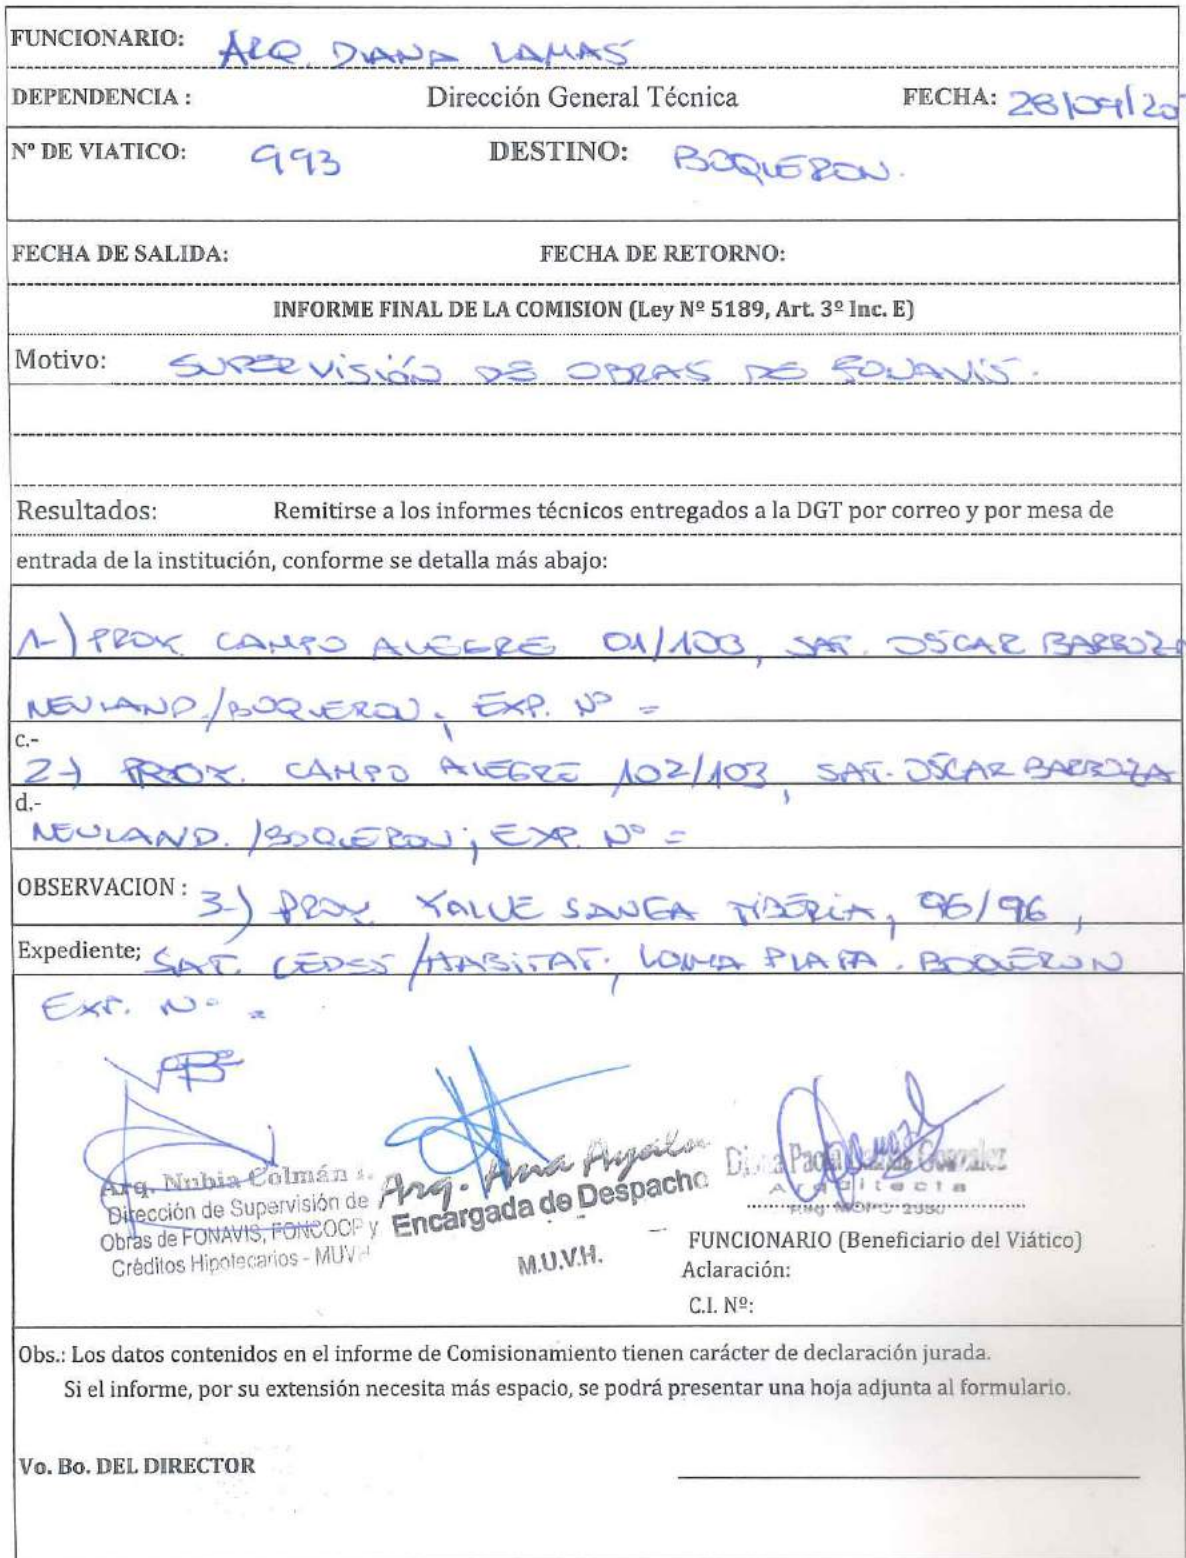 FUNCIONARIO: ARQ. DIANA LAMAS
DEPENDENCIA : Dirección General Técnica FECHA: 28/09/20
Nº DE VIATICO: 993 DESTINO: BOQUERON.
FECHA DE SALIDA: FECHA DE RETORNO:
INFORME FINAL DE LA COMISION (Ley Nº 5189, Art. 3º Inc. E)
Motivo: SUPERVISIÓN DE OBRAS DE FONAVIS.
Resultados: Remitirse a los informes técnicos entregados a la DGT por correo y por mesa de
entrada de la institución, conforme se detalla más abajo:
1-) PROY. CAMPO ALEGRE 01/103, SAT. OSCAR BARROZA
NEULAND./BOQUERON; EXP. Nº =
c.-
2-) PROY. CAMPO ALEGRE 102/103, SAT. OSCAR BARROZA
d.-
NEULAND. /BOQUERON; EXP. Nº =
OBSERVACION : 3-) PROY. YALVE SANGA TIBERIA, 96/96,
Expediente; SAT. CEDES /HABITAT. LOMA PLATA. BOQUERON
EXP. Nº =
Arq. Nubia Colmán
Dirección de Supervisión de
Obras de FONAVIS, FONCOOP y
Créditos Hipotecarios - MUVH
Arq. Ana Ayala
Encargada de Despacho
M.U.V.H.
Diana Paola Lamas Gonzalez
Arquitecta
Reg. MOPC
FUNCIONARIO (Beneficiario del Viático)
Aclaración:
C.I. Nº:
Obs.: Los datos contenidos en el informe de Comisionamiento tienen carácter de declaración jurada.
Si el informe, por su extensión necesita más espacio, se podrá presentar una hoja adjunta al formulario.
Vo. Bo. DEL DIRECTOR